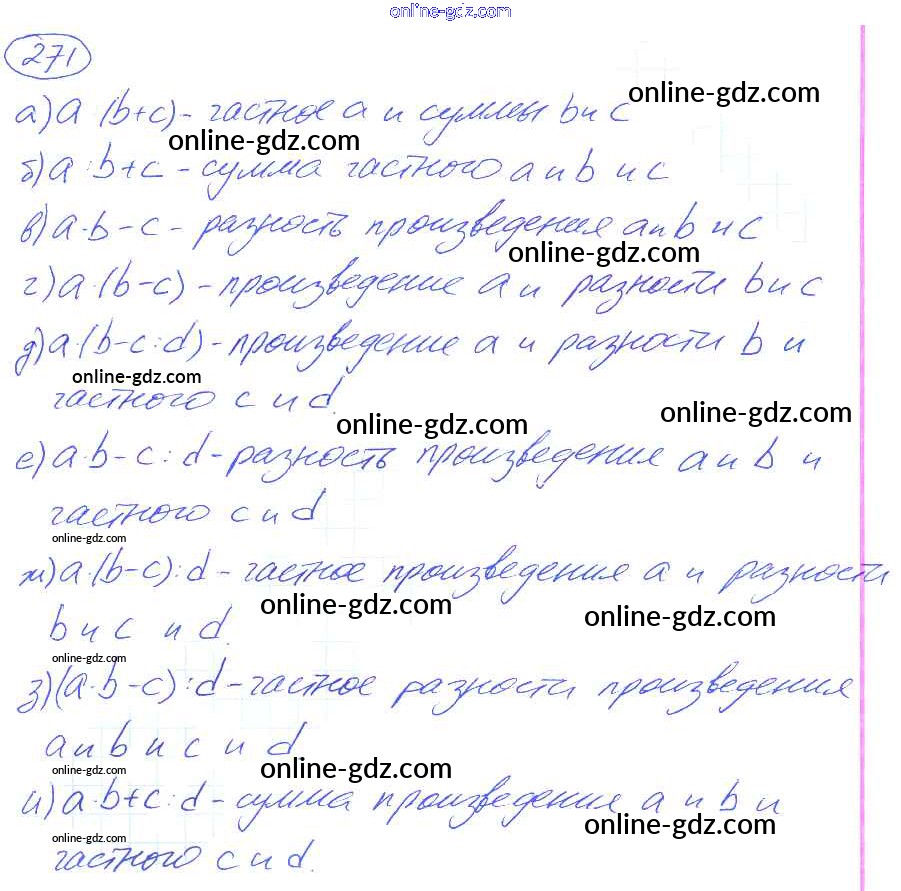 online-gdz.com
271
а) a (b+c) - частное a и суммы b и c
online-gdz.com
online-gdz.com
б) a : b+c - сумма частного a и b и c
в) a·b-c - разность произведения a и b и c
online-gdz.com
г) a·(b-c) - произведение a и разности b и c
д) a·(b-c:d) - произведение a и разности b и
online-gdz.com
частного c и d.
online-gdz.com
online-gdz.com
е) a·b-c:d - разность произведения a и b и
частного c и d
online-gdz.com
ж) a·(b-c):d - частное произведения a и разности
online-gdz.com
online-gdz.com
b и c и d.
online-gdz.com
з) (a·b-c):d - частное разности произведения
a и b и c и d
online-gdz.com
online-gdz.com
и) a·b+c:d - сумма произведения a и b и
online-gdz.com
online-gdz.com
частного c и d.